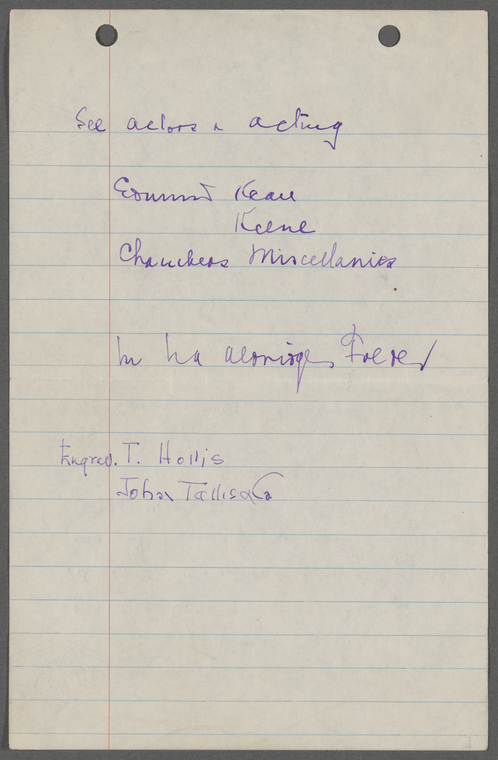 See actors & acting
Edmund Kean
Keene
Chambers Miscellanies
In Ira Aldridge Folder
Engrav. T. Hollis
John Tallis & Co